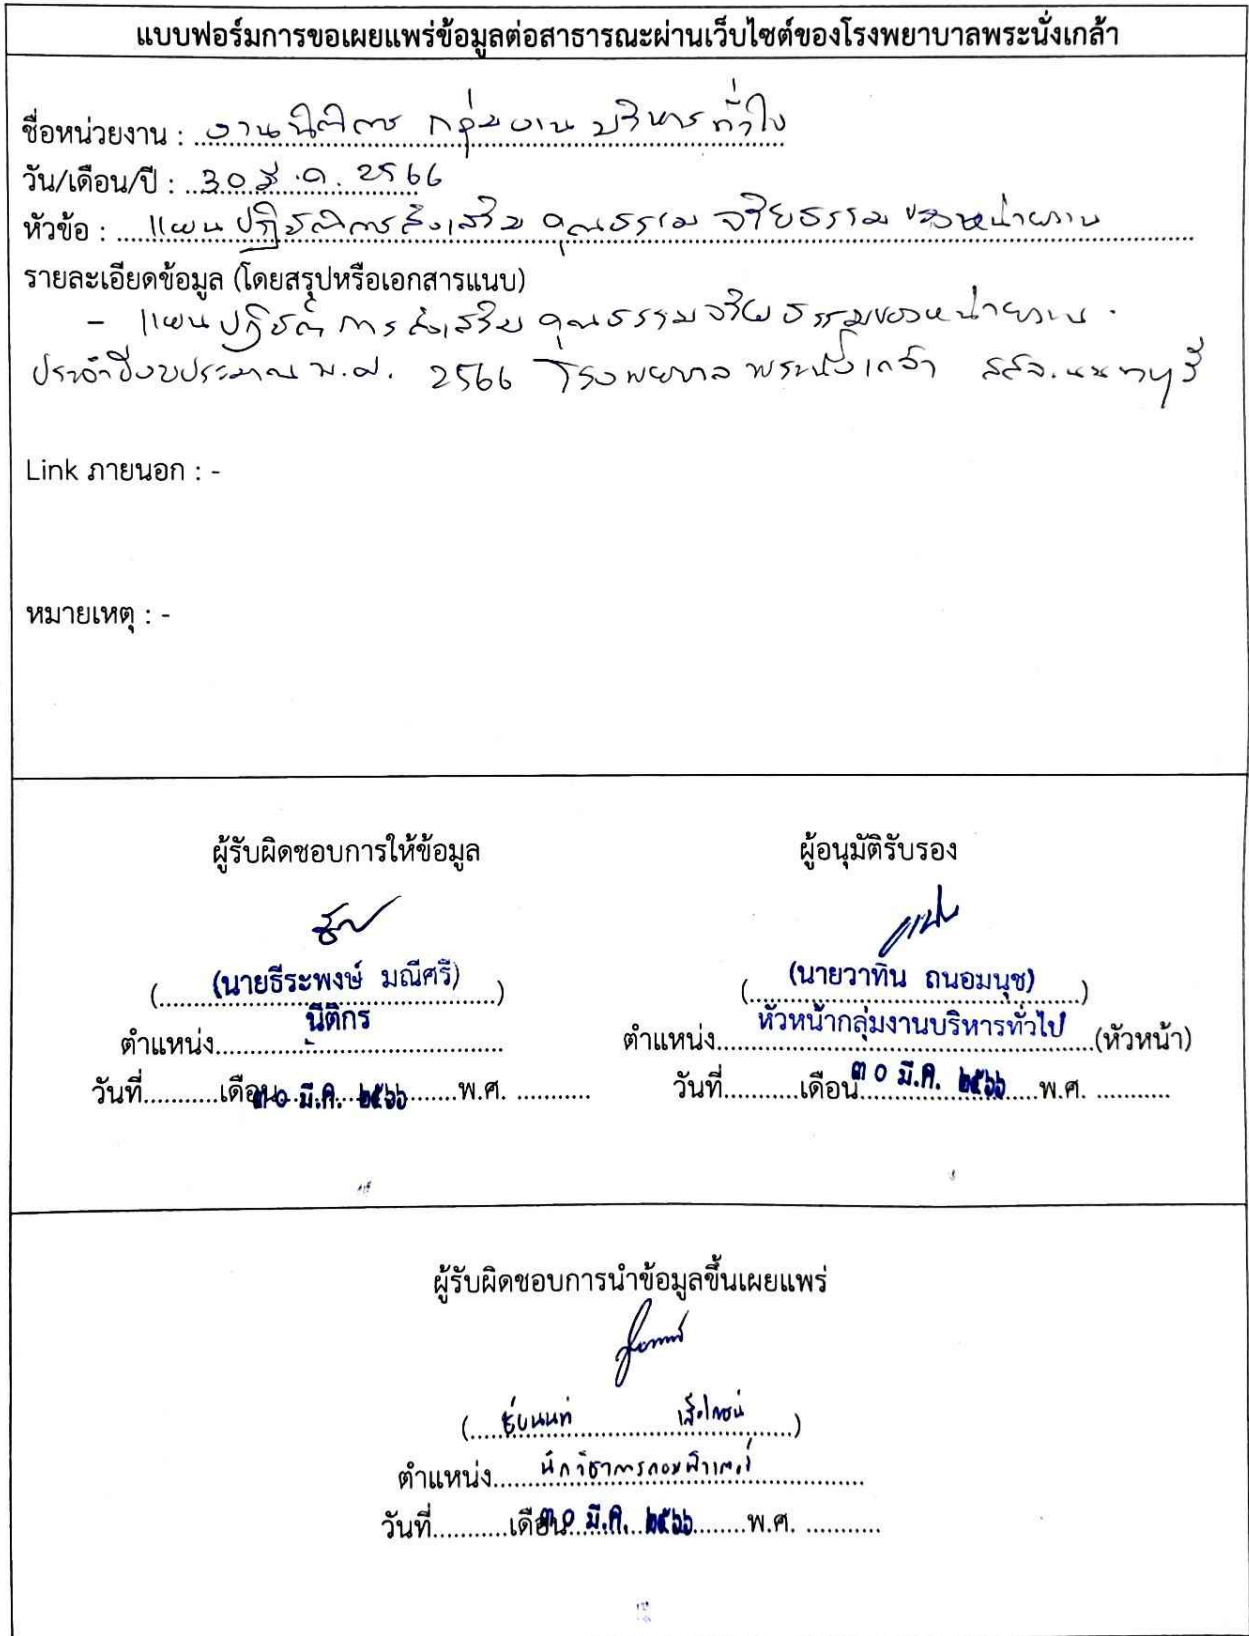 แบบฟอร์มการขอเผยแพร่ข้อมูลต่อสาธารณะผ่านเว็บไซต์ของโรงพยาบาลพระนั่งเกล้า
ชื่อหน่วยงาน : งานนิติการ กลุ่มงานบริหารทั่วไป
วัน/เดือน/ปี : 30 มี.ค. 2566
หัวข้อ : แผนปฏิบัติการส่งเสริม คุณธรรม จริยธรรม ของหน่วยงาน
รายละเอียดข้อมูล (โดยสรุปหรือเอกสารแนบ)
- แผนปฏิบัติการส่งเสริม คุณธรรมจริยธรรมของหน่วยงาน
ประจำปีงบประมาณ พ.ศ. 2566 โรงพยาบาลพระนั่งเกล้า สสจ.นนทบุรี
Link ภายนอก : -
หมายเหตุ : -
ผู้รับผิดชอบการให้ข้อมูล ผู้อนุมัติรับรอง
(นายธีระพงษ์ มณีศรี) (นายวาทิน ถนอมนุช)
ตำแหน่ง นิติกร ตำแหน่ง หัวหน้ากลุ่มงานบริหารทั่วไป (หัวหน้า)
วันที่...........เดือน ๓๐ มี.ค. ๒๕๖๖ พ.ศ. ........... วันที่...........เดือน ๓๐ มี.ค. ๒๕๖๖ พ.ศ. ...........
ผู้รับผิดชอบการนำข้อมูลขึ้นเผยแพร่
ตำแหน่ง นักวิชาการคอมพิวเตอร์
วันที่...........เดือน ๓๐ มี.ค. ๒๕๖๖ พ.ศ. ...........